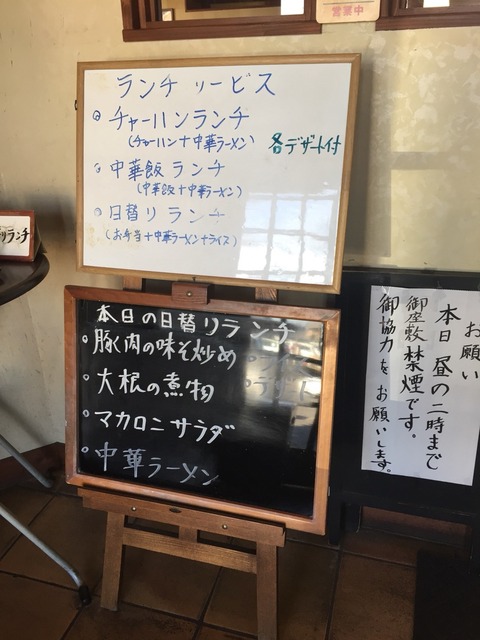 営業中
ランチサービス
◎チャーハンランチ
(チャーハン+中華ラーメン)
各デザート付
◎中華飯ランチ
(中華飯+中華ラーメン)
◎日替りランチ
(お弁当+中華ラーメン+ライス)
ランチ
本日の日替りランチ
◦豚肉の味そ炒め
◦ライス
◦大根の煮物
◦デザート
◦マカロニサラダ
◦中華ラーメン
お願い
本日昼の二時まで
御座敷禁煙です。
御協力をお願いします。